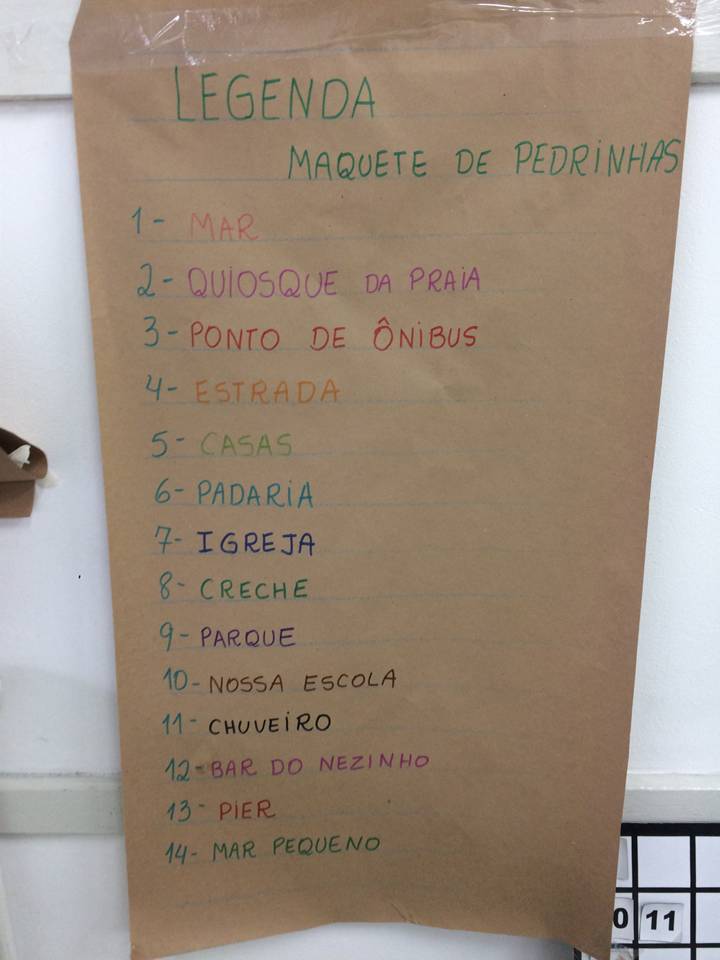 LEGENDA
MAQUETE DE PEDRINHAS
1- MAR
2- QUIOSQUE DA PRAIA
3- PONTO DE ÔNIBUS
4- ESTRADA
5- CASAS
6- PADARIA
7- IGREJA
8- CRECHE
9- PARQUE
10- NOSSA ESCOLA
11- CHUVEIRO
12- BAR DO NEZINHO
13- PIER
14- MAR PEQUENO
0 11